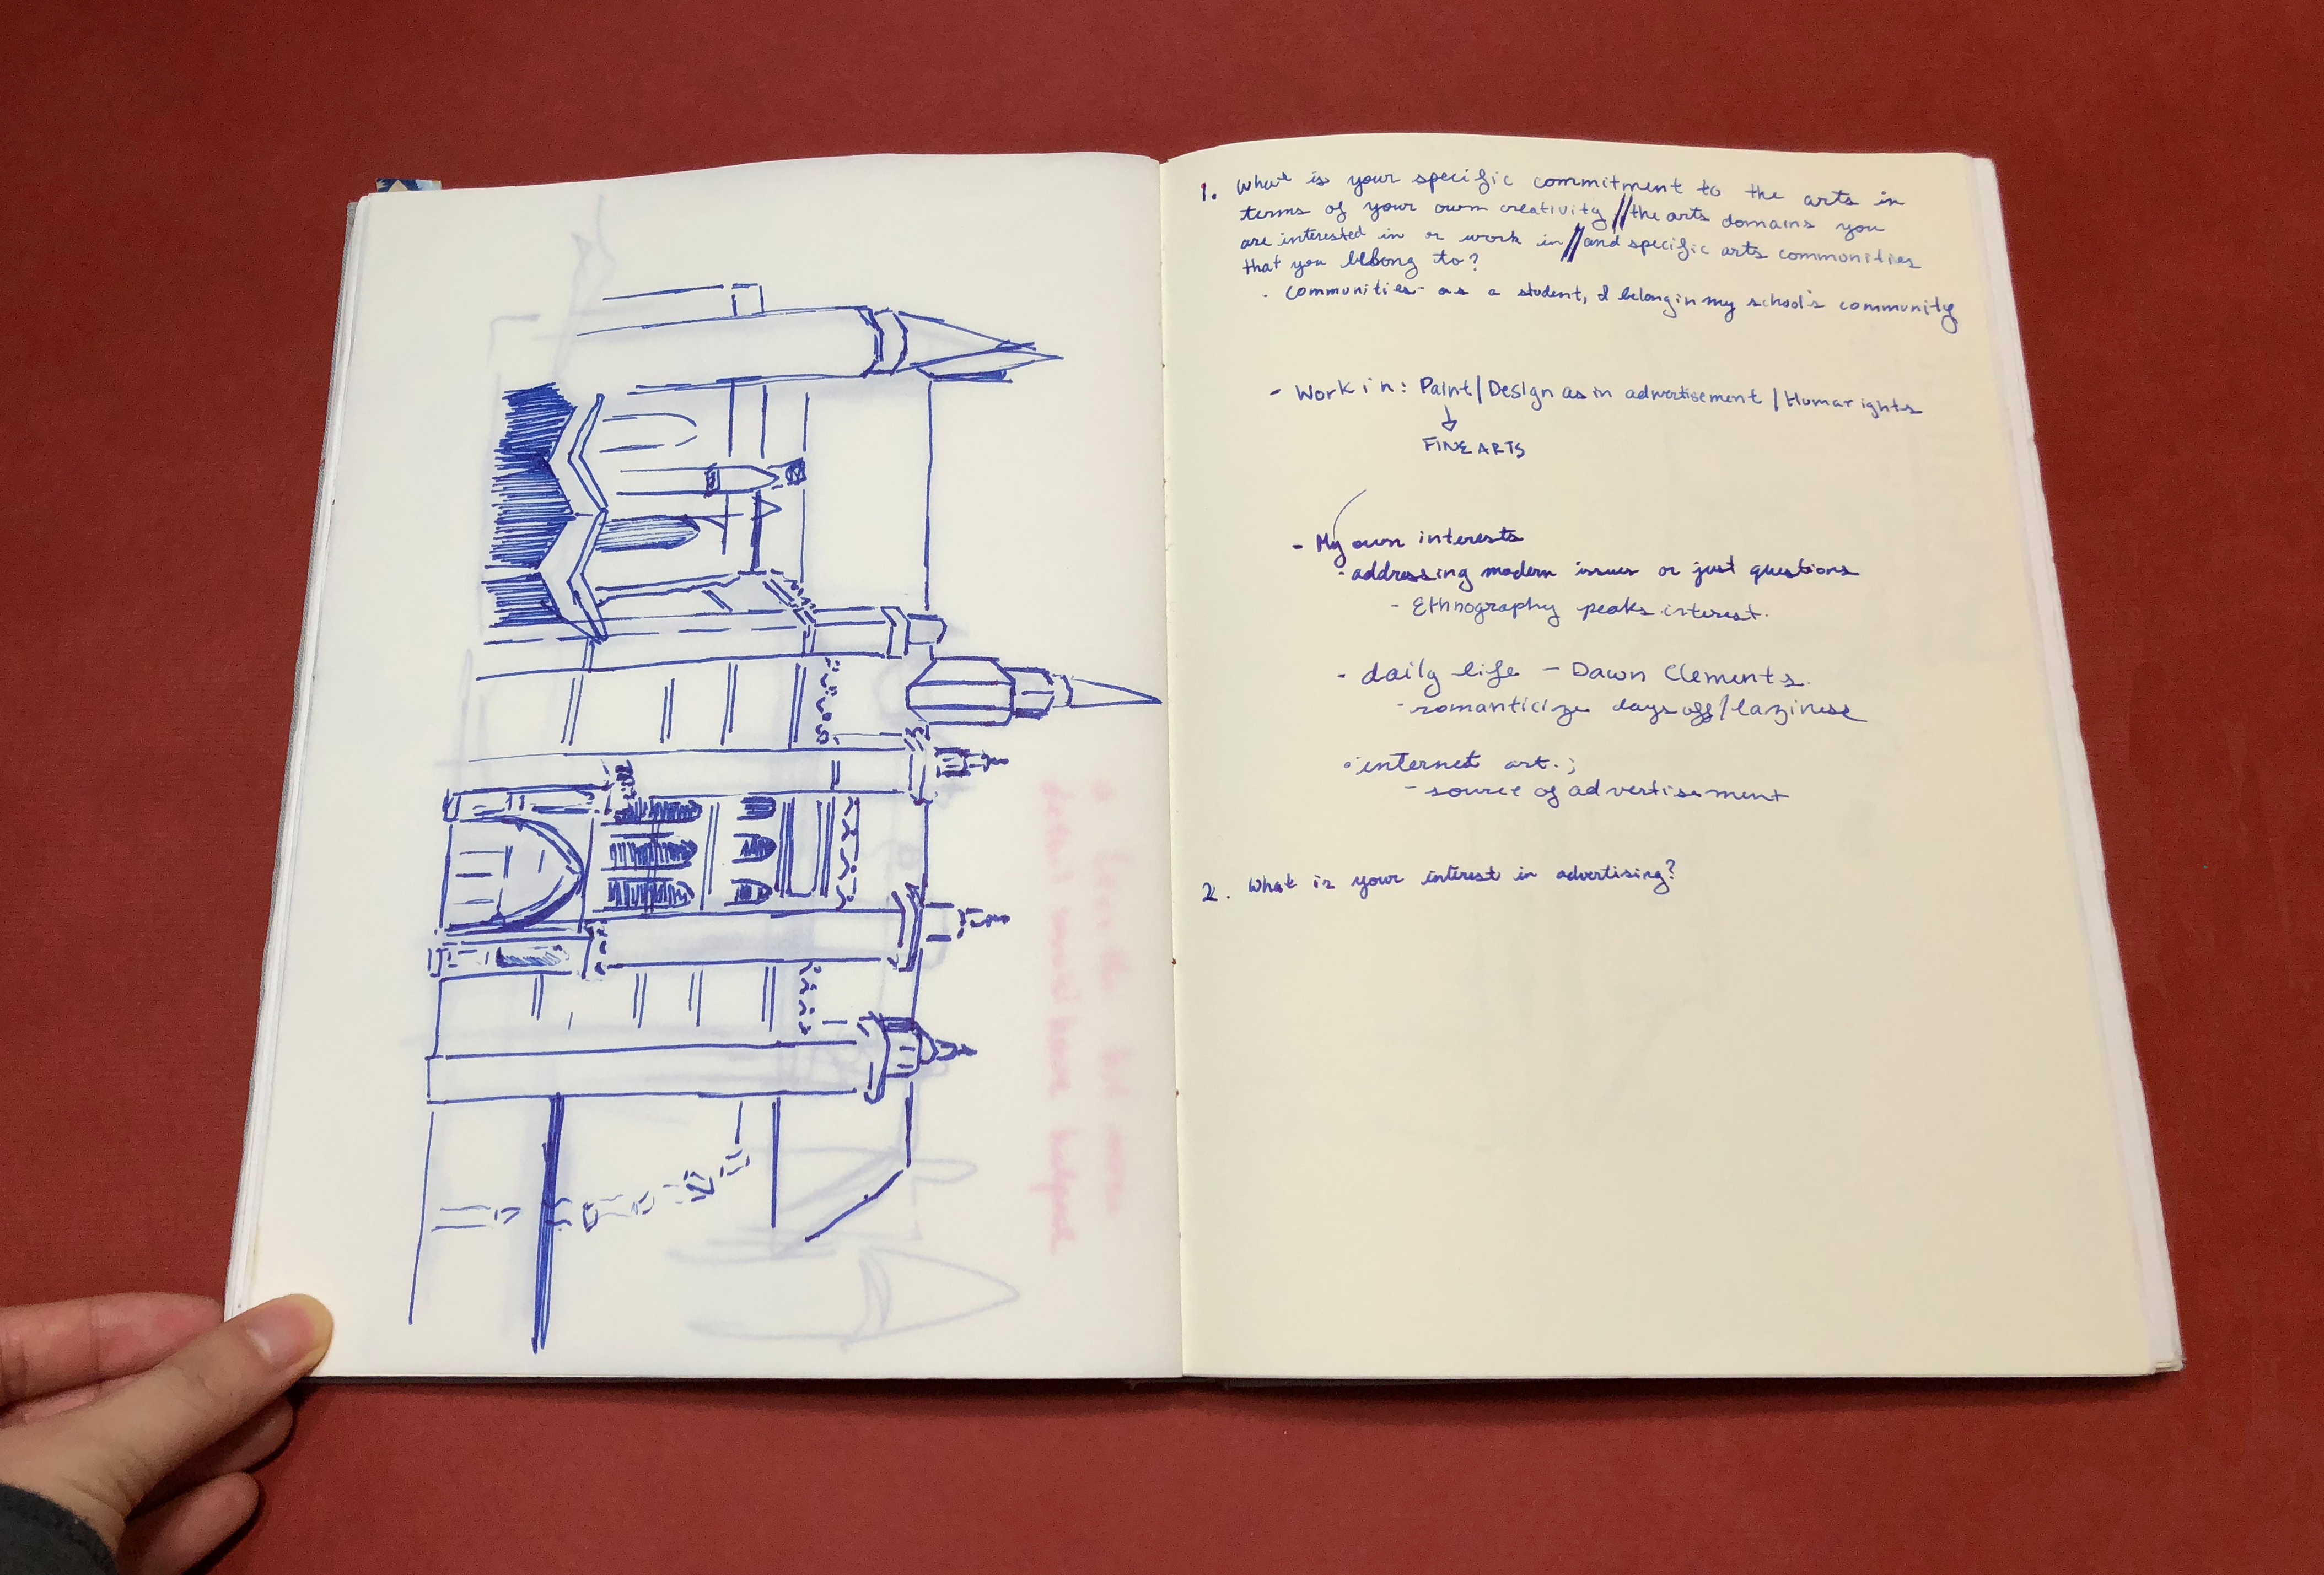 1. What is your specific commitment to the arts in
terms of your own creativity // the arts domains you
are interested in or work in // and specific arts communities
that you belong to?
- Communities - as a student, I belong in my school's community
- Work in: Paint/Design as in advertisement / Human rights
FINE ARTS
- My own interests
- addressing modern issues or just questions
- Ethnography peaks interest.
- daily life - Dawn Clements.
- romanticize days off/laziness
• internet art.;
- source of advertisement
2. What is your interest in advertising?